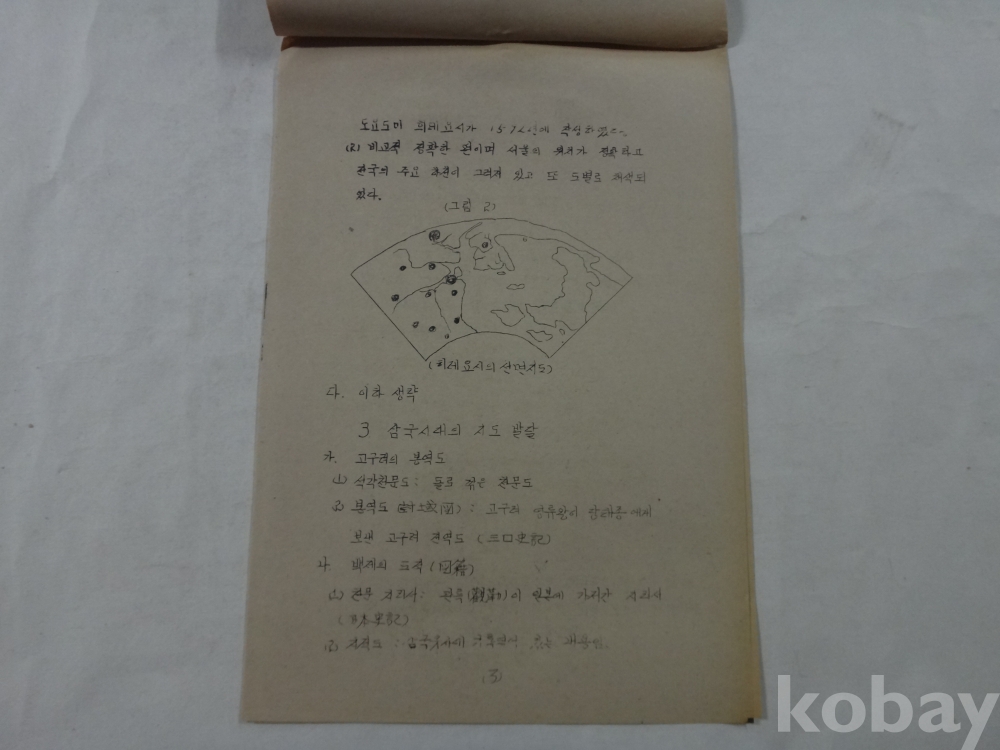 도요도미 희레요시가 15 작성하였다.
(2) 비교적 정확한 편이며 서울의 위치가 정확하고
한국의 주요 하천이 그려져 있고 또 도별로 채색되
었다.
(그림 2)
(히레요시의 선면지도)
다. 이하 생략
3 삼국시대의 지도 발달
가. 고구려의 봉역도
(1) 석각천문도: 돌로 깎은 천문도
(2) 봉역도 (封域図): 고구려 영류왕이 당태종에게
보낸 고구려 전역도 (三口史記)
나 백제의 도적 (図籍)
(1) 천문 지리서: 관륵 이 일본에 가져간 지리서
(日本史記)
(2) 지적도: 삼국유사에
(3)
kobay